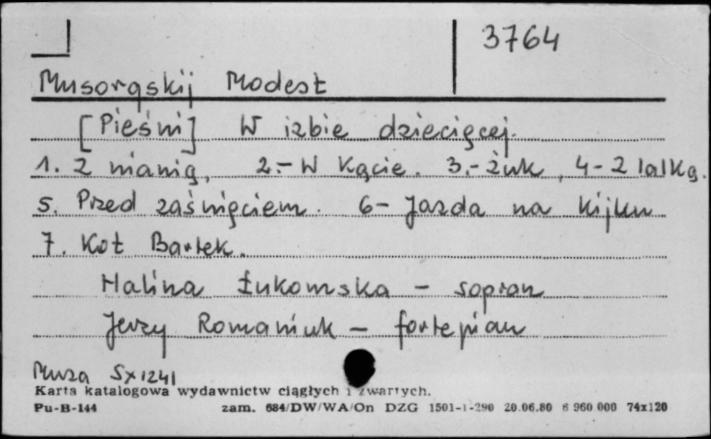 3764
Musorgskij Modest
[Pieśni] W izbie dziecięcej.
1. Z nianią, 2.- W kącie. 3.- Żuk, 4 - Z lalką.
5. Przed zaśnięciem. 6- Jazda na kijku
7. Kot Bartek.
Halina Łukomska - sopran
Jerzy Romaniuk - fortepian
Muza SX1241
Karta katalogowa wydawnictw ciągłych i zwartych.
Pu-B-144 zam. 684/DW/WA/On DZG 1501-1-290 20.06.80 6 960 000 74x120